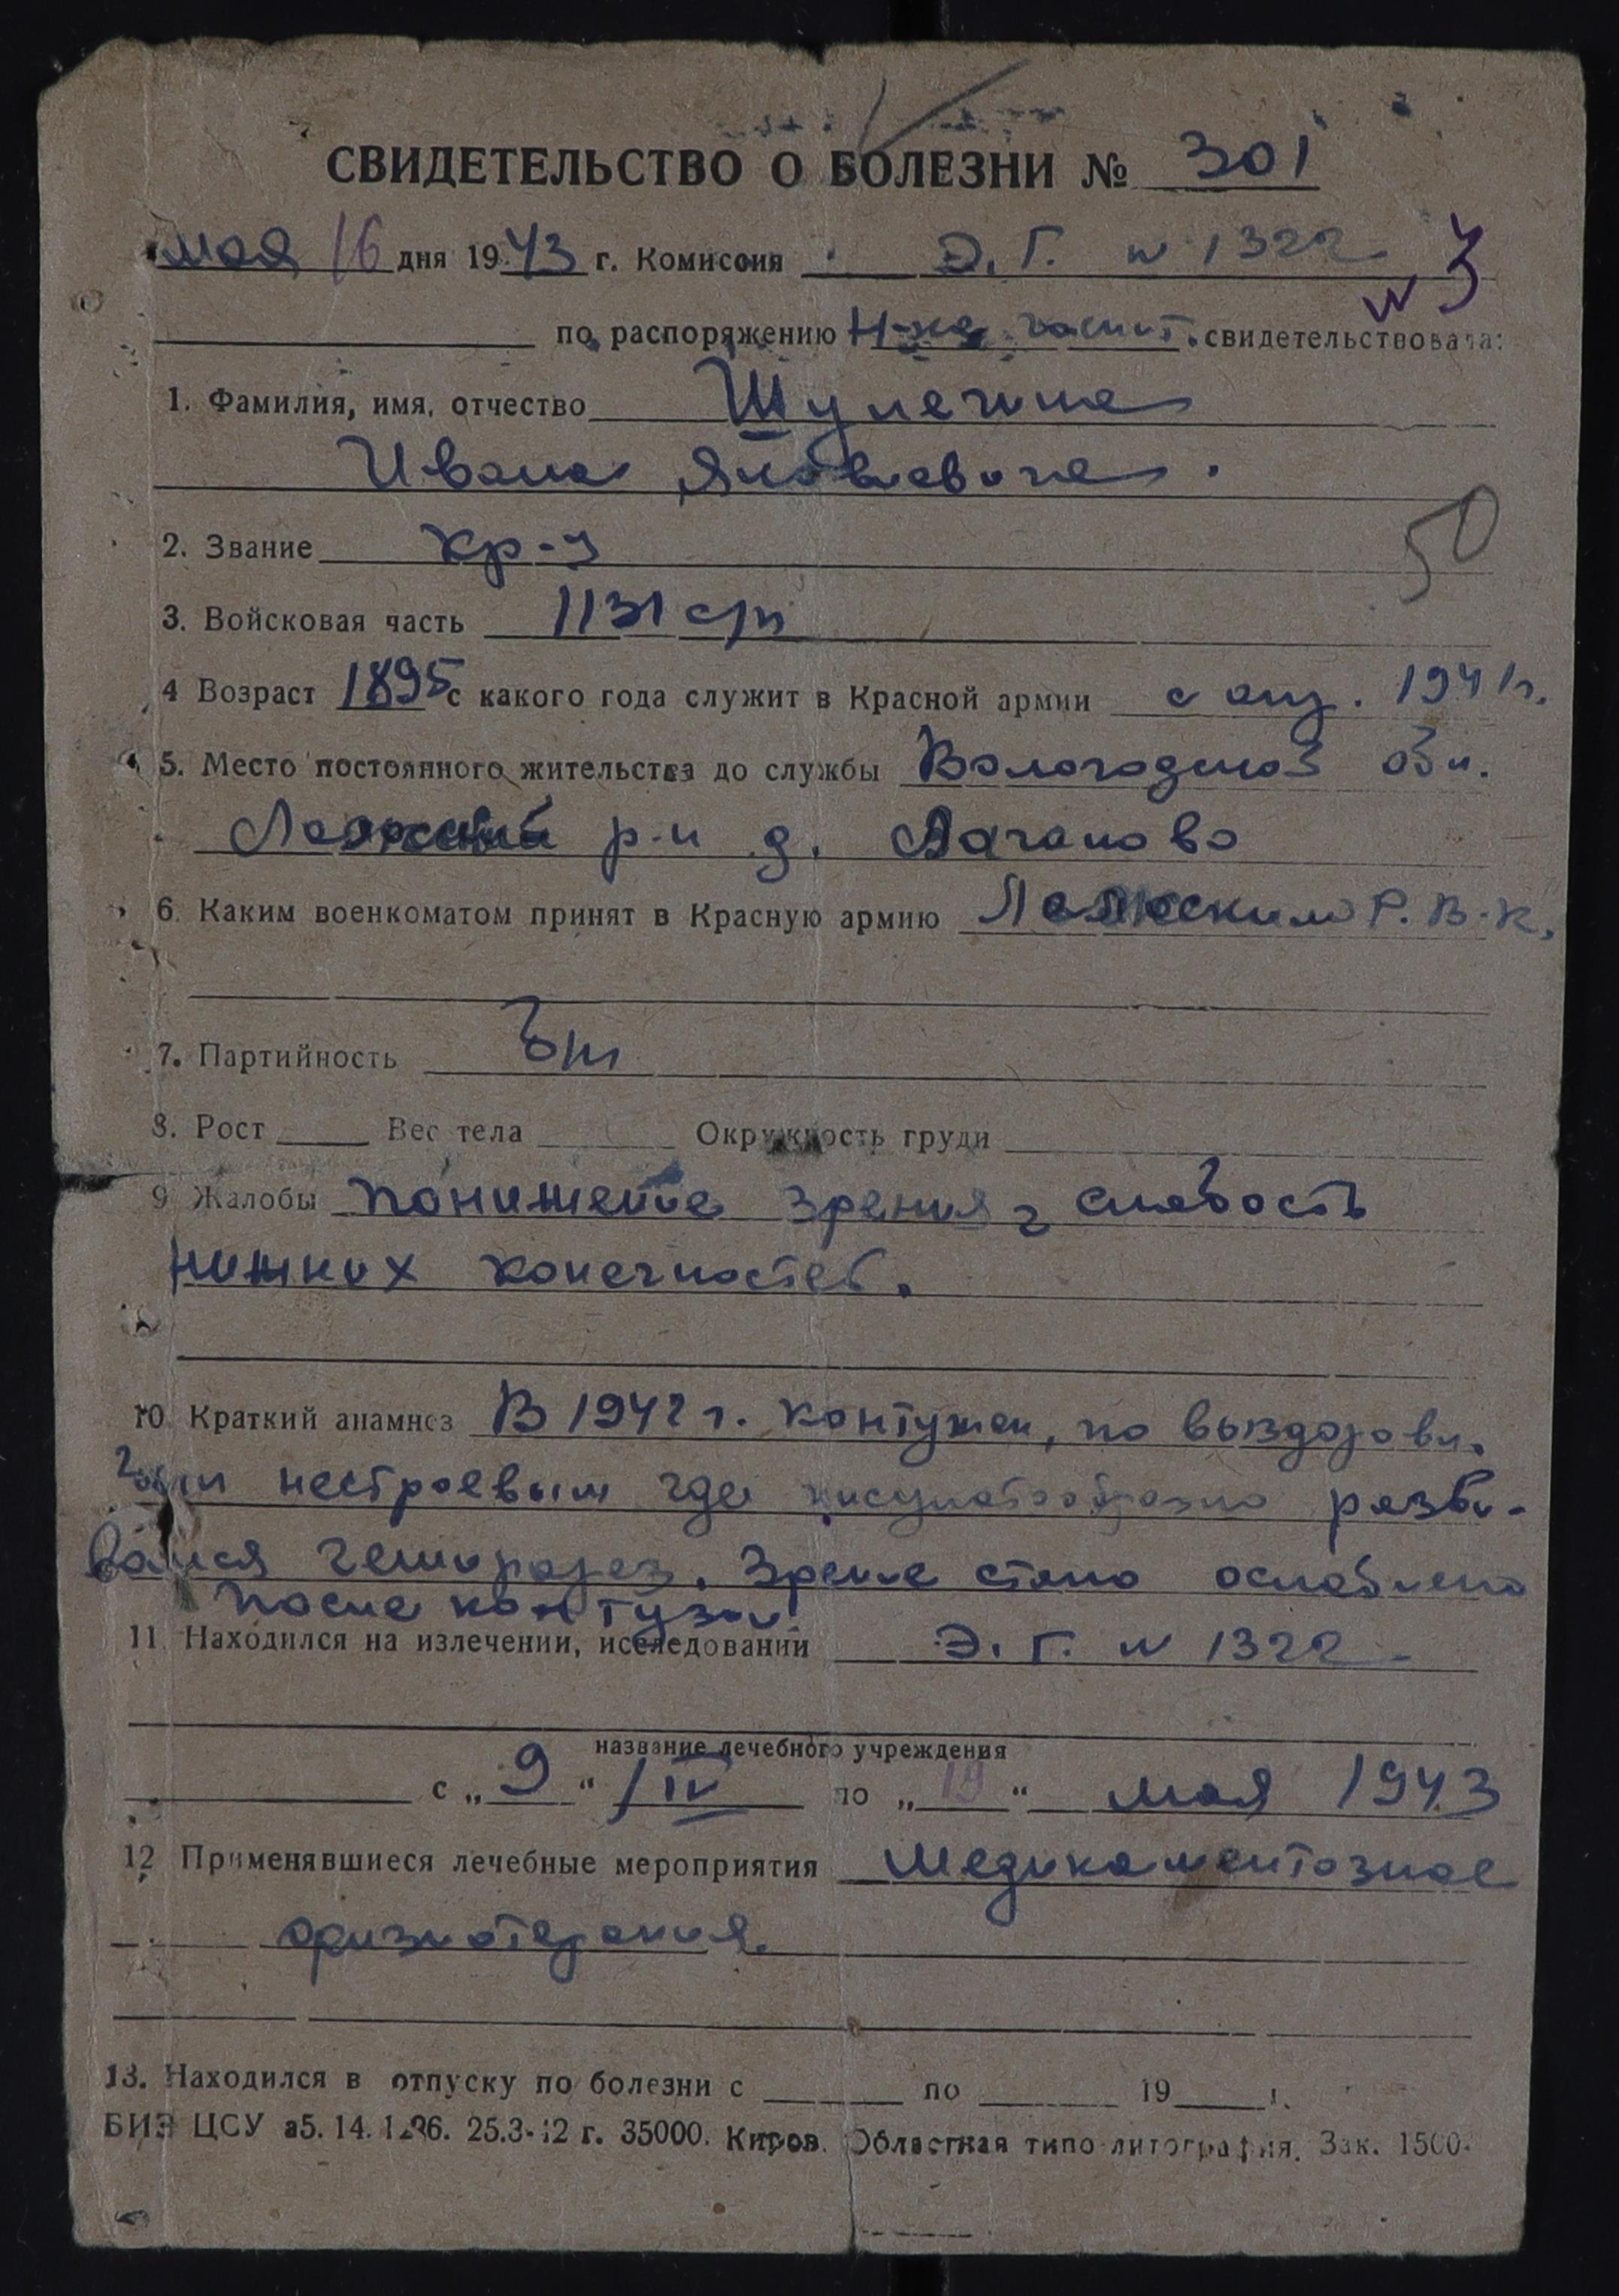 СВИДЕТЕЛЬСТВО О БОЛЕЗНИ № 301
мая 16 дня 1943 г. Комиссия Э. Г. N 1322
N 3
по распоряжению Н-ка госпит. свидетельствовала:
1. Фамилия, имя, отчество Шулегина
Ивана Яковлевича.
50
2. Звание кр-ц
3. Войсковая часть 1131 с/п
4 Возраст 1895 с какого года служит в Красной армии с 1941 г.
5. Место постоянного жительства до службы Вологодской обл.
р-н д.
6. Каким военкоматом принят в Красную армию Лежским Р. В. К.
7. Партийность б/п
8. Рост Вес тела Окружность груди
9 Жалобы Понижение зрения, слабость
нижних конечностей.
10. Краткий анамнез В 1942 г. контужен, по выздоровл.
был нестроевым где развы-
вался гемипарез. Зрение стало ослаблено
после контузии.
11. Находился на излечении, исследовании Э. Г. N 1322
название лечебного учреждения
с „9“ / IV по „19“ мая 1943
12 Применявшиеся лечебные мероприятия Медикаментозное
физиотерапия.
13. Находился в отпуску по болезни с по 19 г.
БИЗ ЦСУ 25.3-42 г. 35000. Киров. Областная типо-литография. Зак. 1500.